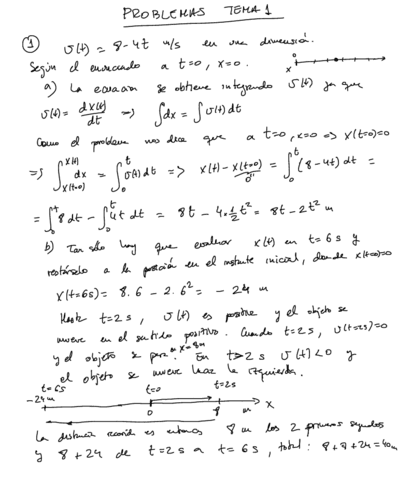 PROBLEMAS TEMA 1
① v(t) = 8-4t m/s en una dimensión.
Según el enunciado a t=0, x=0.
a) La ecuación se obtiene integrando v(t) ya que
v(t) = dx(t)/dt => ∫dx = ∫v(t)dt
Como el problema nos dice que a t=0, x=0 => x(t=0)=0
=> ∫_{x(t=0)}^{x(t)} dx = ∫_0^t v(t)dt => x(t) - x(t=0) = ∫_0^t (8-4t)dt =
0
= ∫_0^t 8dt - ∫_0^t 4t dt = 8t - 4·1/2 t² = 8t - 2t² m
b) Tan sólo hay que evaluar x(t) en t=6s y
restárselo a la posición en el instante inicial, donde x(t=0)=0
x(t=6s) = 8·6 - 2·6² = -24 m
Hasta t=2s, v(t) es positiva y el objeto se
mueve en el sentido positivo. Cuando t=2s, v(t=2s)=0
y el objeto se para en x=8m. En t>2s v(t)<0 y
el objeto se mueve hacia la izquierda.
t=6s t=0 t=2s
-24m 0 8 m x
La distancia recorrida es entonces 8 m los 2 primeros segundos
y 8+24 de t=2s a t=6s, total: 8+8+24=40m